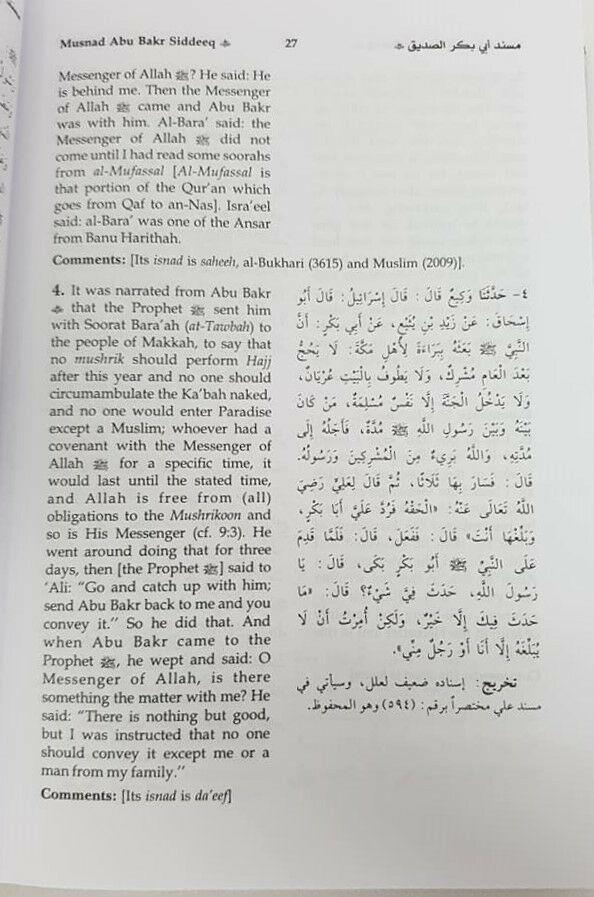 Musnad Abu Bakr Siddeeq ﷺ 27 مسند أبي بكر الصديق
Messenger of Allah ﷺ? He said: He
is behind me. Then the Messenger
of Allah ﷺ came and Abu Bakr
was with him. Al-Bara' said: the
Messenger of Allah ﷺ did not
come until I had read some soorahs
from al-Mufassal [Al-Mufassal is
that portion of the Qur'an which
goes from Qaf to an-Nas]. Isra'eel
said: al-Bara' was one of the Ansar
from Banu Harithah.
Comments: [Its isnad is saheeh, al-Bukhari (3615) and Muslim (2009)].
4. It was narrated from Abu Bakr
that the Prophet ﷺ sent him
with Soorat Bara'ah (at-Tawbah) to
the people of Makkah, to say that
no mushrik should perform Hajj
after this year and no one should
circumambulate the Ka'bah naked,
and no one would enter Paradise
except a Muslim; whoever had a
covenant with the Messenger of
Allah ﷺ for a specific time, it
would last until the stated time,
and Allah is free from (all)
obligations to the Mushrikoon and
so is His Messenger (cf. 9:3). He
went around doing that for three
days, then [the Prophet ﷺ] said to
'Ali: "Go and catch up with him;
send Abu Bakr back to me and you
convey it." So he did that. And
when Abu Bakr came to the
Prophet ﷺ, he wept and said: O
Messenger of Allah, is there
something the matter with me? He
said: "There is nothing but good,
but I was instructed that no one
should convey it except me or a
man from my family."
Comments: [Its isnad is da'eef]
٤- حَدَّثَنَا وَكِيعٌ قَالَ: قَالَ إِسْرَائِيلُ: قَالَ أَبُو
إِسْحَاقَ: عَنْ زَيْدِ بْنِ يُثَيْعٍ، عَنْ أَبِي بَكْرٍ: أَنَّ
النَّبِيَّ ﷺ بَعَثَهُ بِبَرَاءَةَ لِأَهْلِ مَكَّةَ: لَا يَحُجُّ
بَعْدَ الْعَامِ مُشْرِكٌ، وَلَا يَطُوفُ بِالْبَيْتِ عُرْيَانٌ،
وَلَا يَدْخُلُ الْجَنَّةَ إِلَّا نَفْسٌ مُسْلِمَةٌ، مَنْ كَانَ
بَيْنَهُ وَبَيْنَ رَسُولِ اللَّهِ ﷺ مُدَّةٌ، فَأَجَلُهُ إِلَى
مُدَّتِهِ، وَاللَّهُ بَرِيءٌ مِنَ الْمُشْرِكِينَ وَرَسُولُهُ.
قَالَ: فَسَارَ بِهَا ثَلَاثًا، ثُمَّ قَالَ لِعَلِيٍّ رَضِيَ
اللَّهُ تَعَالَى عَنْهُ: «الْحَقْهُ فَرُدَّ عَلَيَّ أَبَا بَكْرٍ،
وَبَلِّغْهَا أَنْتَ» قَالَ: فَفَعَلَ، قَالَ: فَلَمَّا قَدِمَ
عَلَى النَّبِيِّ ﷺ أَبُو بَكْرٍ بَكَى، قَالَ: يَا
رَسُولَ اللَّهِ، حَدَثَ فِيَّ شَيْءٌ؟ قَالَ: «مَا
حَدَثَ فِيكَ إِلَّا خَيْرٌ، وَلَكِنْ أُمِرْتُ أَنْ لَا
يُبَلِّغَهُ إِلَّا أَنَا أَوْ رَجُلٌ مِنِّي».
تخريج: إسناده ضعيف لعلل، وسيأتي في
مسند علي مختصراً برقم: (٥٩٤) وهو المحفوظ.